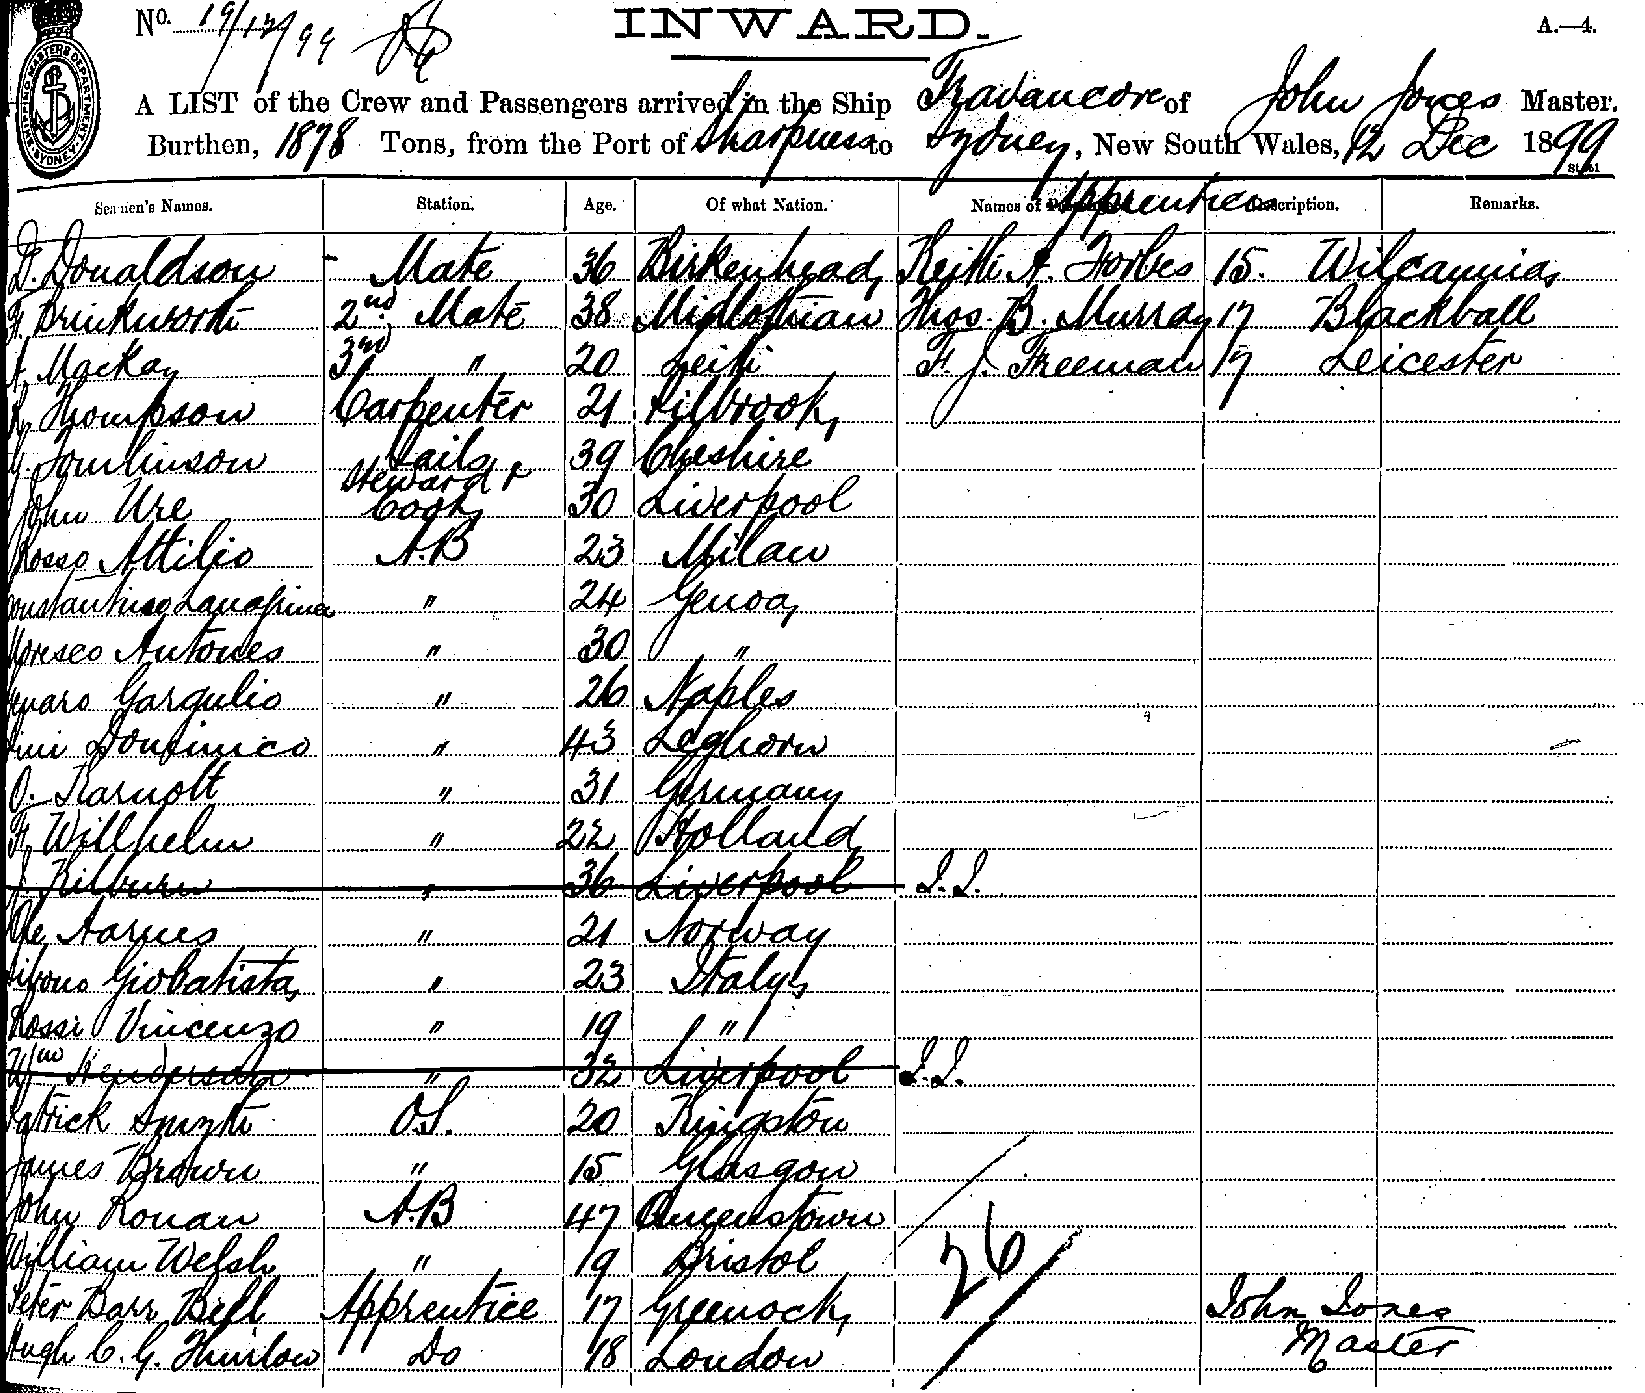 No. 19/12/99
INWARD.
A.—4.
SHIPPING MASTERS DEPARTMENT SYDNEY
A LIST of the Crew and Passengers arrived in the Ship Travancore of John Jones Master.
Burthen, 1878 Tons, from the Port of Sharpness to Sydney, New South Wales, 12 Dec 1899
Seamen's Names. Station. Age. Of what Nation. Names of Apprentices Description. Remarks.
D. Donaldson Mate 36 Birkenhead Keith A. Forbes 15. Wilcannia
F. Brinkworth 2nd Mate 38 Midlothian Thos. B. Murray 17 Blackball
A. MacKay 3rd " 20 Leith F. J. Freeman 17 Leicester
Thompson Carpenter 21 Pilbrook
Tomlinson Sails 39 Cheshire
John Ure Steward & Cook 30 Liverpool
Rosso Attilio A.B 23 Milan
Constantino " 24 Genoa
Antones " 30 "
Genaro Gargulio " 26 Naples
Dominico " 43 Leghorn
O. Karnott " 31 Germany
F. Willhelm " 22 Holland
J. Kilburn " 36 Liverpool
Ole Aarnes " 21 Norway
Giobatista " 23 Italy
Rossi Vincenzo " 19 "
Wm Henderson " 32 Liverpool
Patrick Smyth O.S. 20 Kingston
James Brown " 15 Glasgow
John Ronan A.B 47 Queenstown
William Welsh " 19 Bristol
26
Peter Barr Bell Apprentice 17 Greenock John Jones
Hugh C. G. Thurlow Do 18 London Master